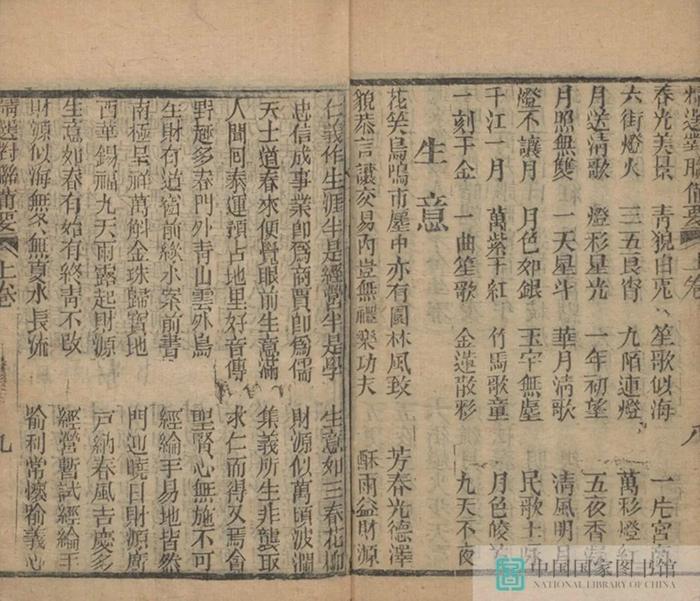 精選對聯備要 上卷 八
春光美景 青猊白兎 笙歌似海 一片宮
六街燈火 三五良宵 九陌連燈 萬彩燈紅
月送清歌 燈彩星光 一年初望 五夜香
月照無雙 一天星斗 華月清歌 清風明月
燈不讓月 月色如銀 玉宇無塵 民歌土
千江一月 萬紫千紅 竹馬歌童 月色皎
一刻千金 一曲笙歌 金蓮散彩 九天不夜
生意
花笑鳥鳴市屋中亦有園林風致 芳春光德澤
貌恭言讓交易內豈無禮樂功夫 酥雨益財源
仁義作生涯半是經營半是學 生意如三春花柳
忠信成事業即爲商賈即爲儒 財源似萬頃波瀾
天上道春來便覺眼前生意滿 集義所生非襲取
人間回泰運須占地里好音傳 求仁而得又焉貪
野趣多春門外青山雲外鳥 聖賢心無施不可
生財有道窗前綠水案前書 經綸手易地皆然
南極呈祥萬斛金珠歸寶地 門迎曉日財源廣
西華錫福九天雨露起財源 戶納春風吉慶多
生意如春有始有終青不改 經營暫試經綸手
財源似海無冬無夏水長流 喻利常懷喻義心
精選對聯備要 上卷 九
中国国家图书馆
NATIONAL LIBRARY OF CHINA